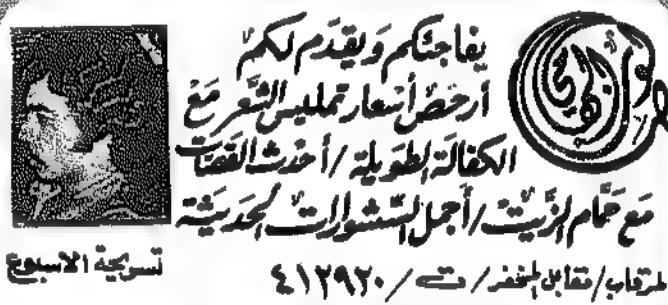 يفاجئكم ويقدم لكم
أرخص أسعار تمليس الشعر مع
الكفالة الطويلة / أحدث القصات
مع حمام الزيت / أجمل السشوارات الحديثة
المرقاب / مقابل المخفر / ت / ٤١٢٩٢٠
تسريحة الاسبوع